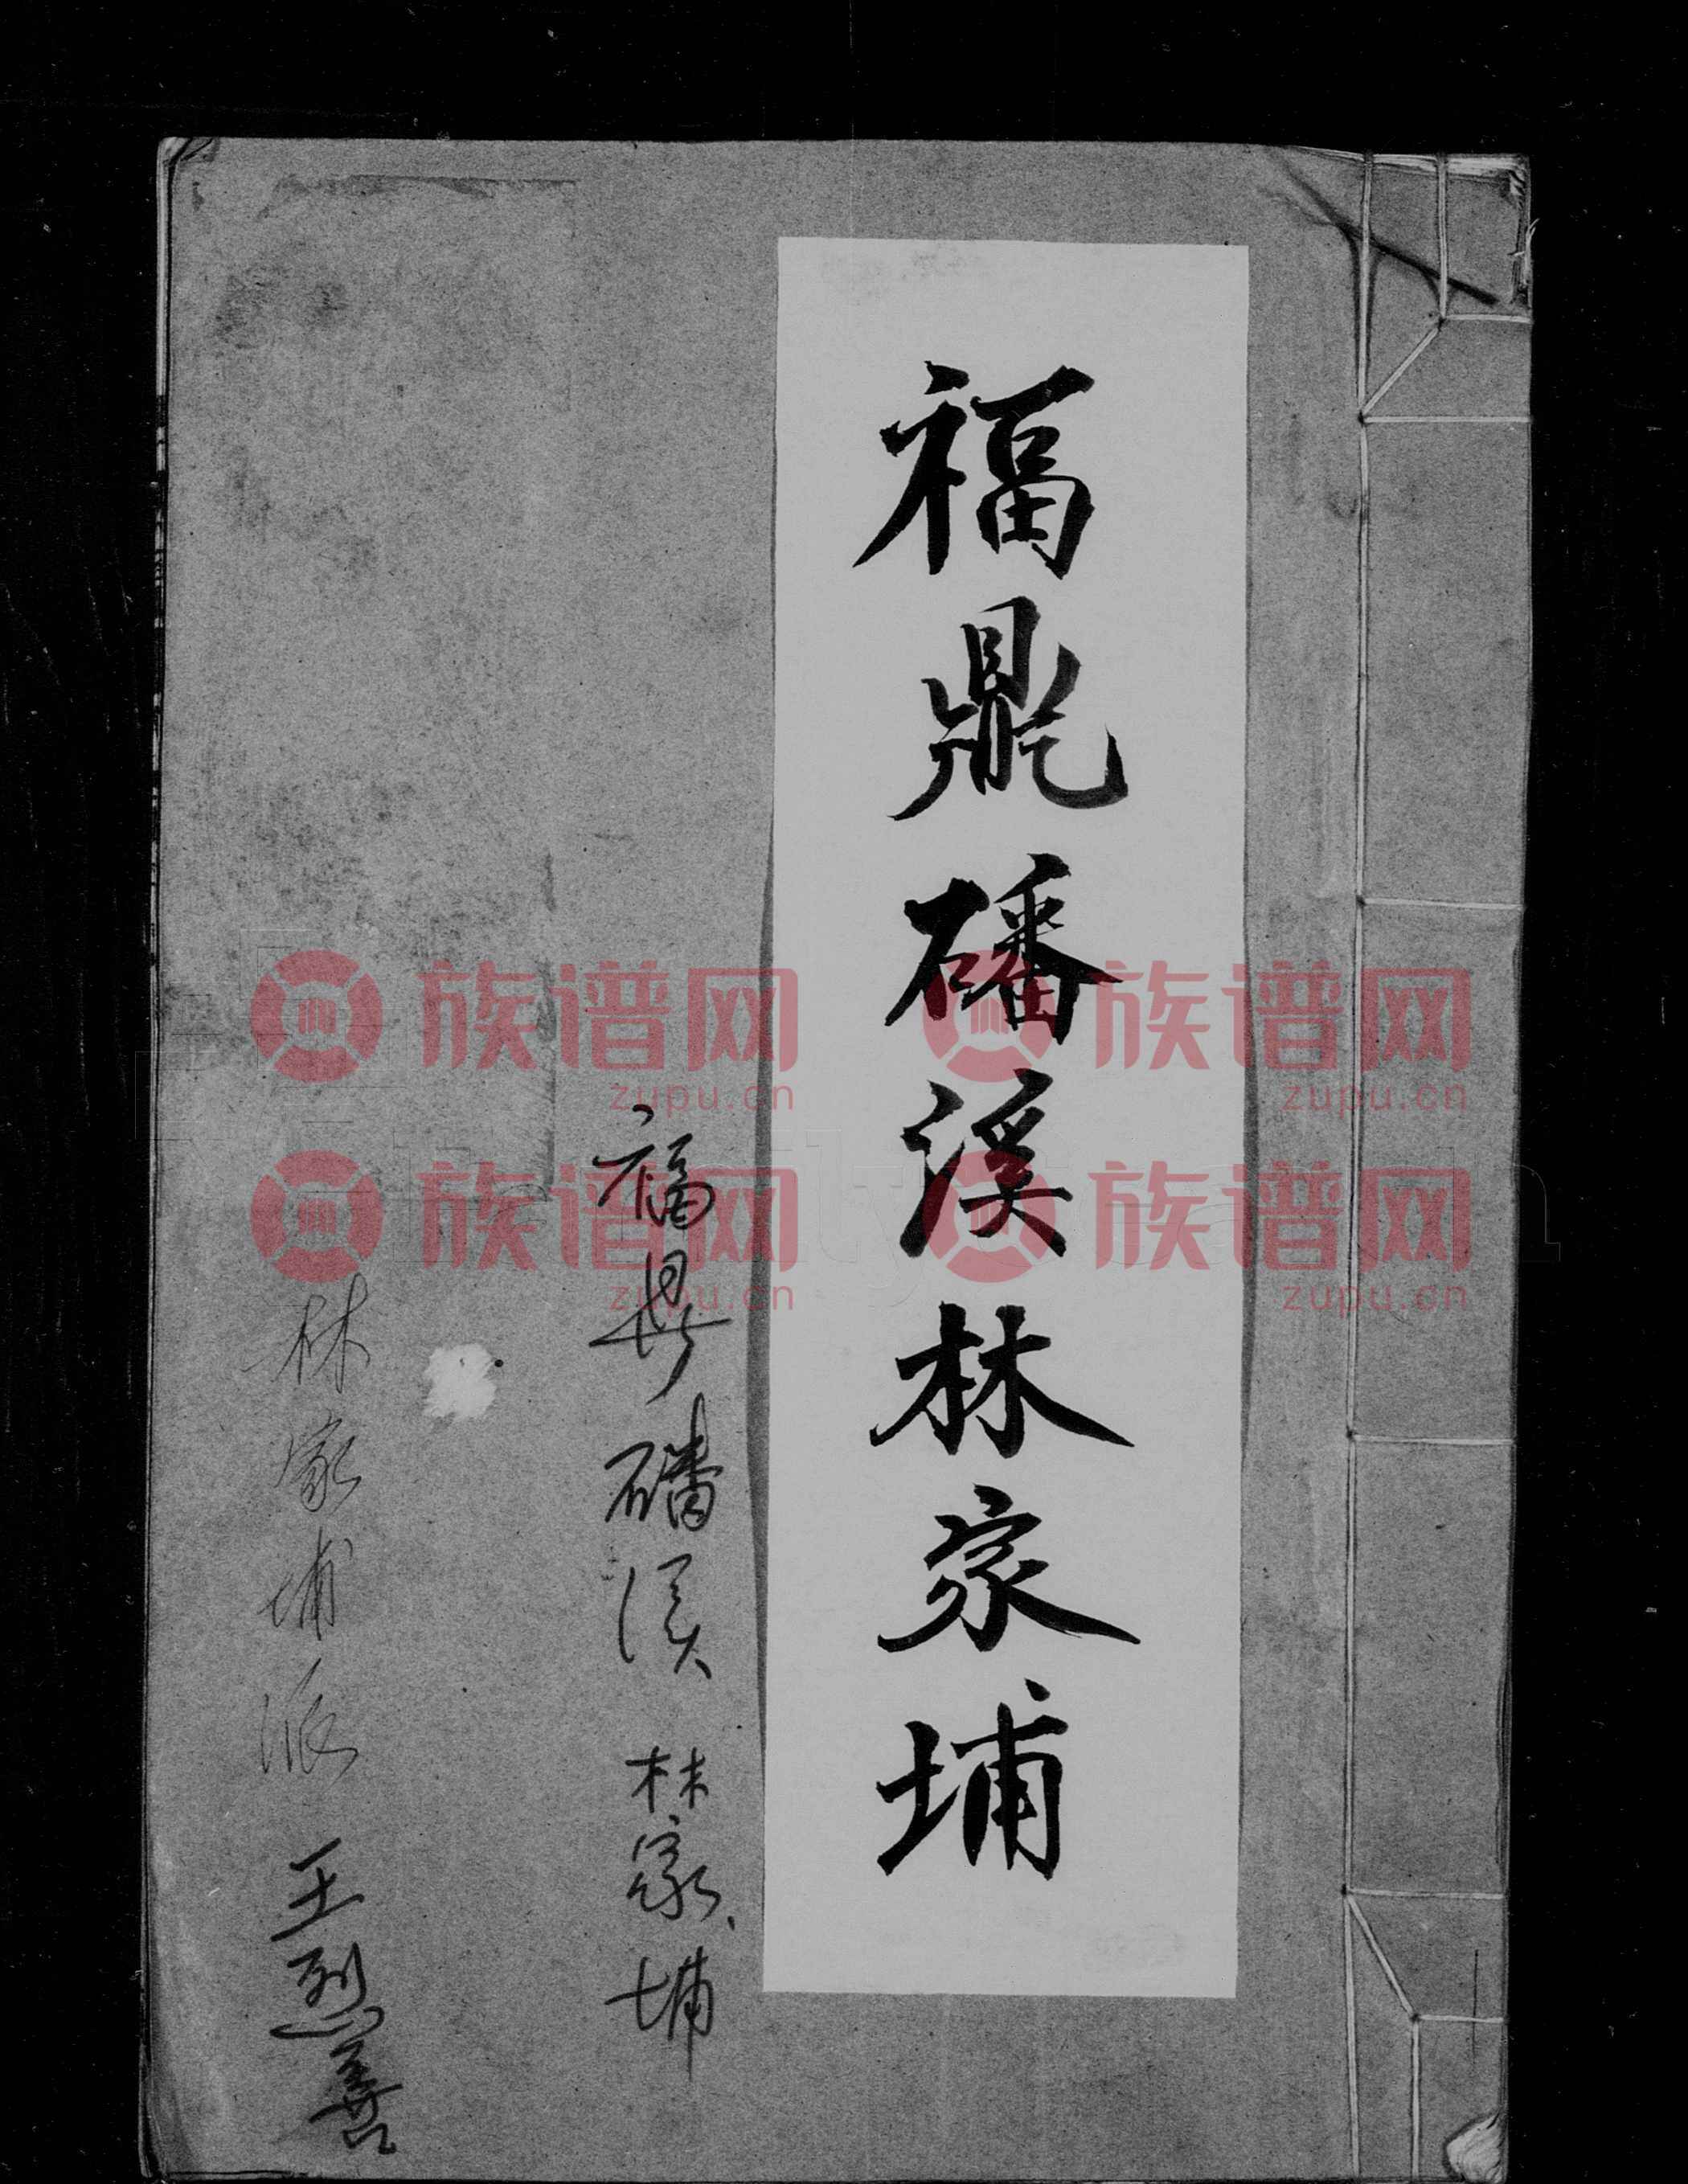 福鼎磻溪林家埔
福鼎磻溪 林家埔
林家埔派 王烈善
族谱网 族谱网
zupu.cn zupu.cn
族谱网 族谱网
zupu.cn zupu.cn